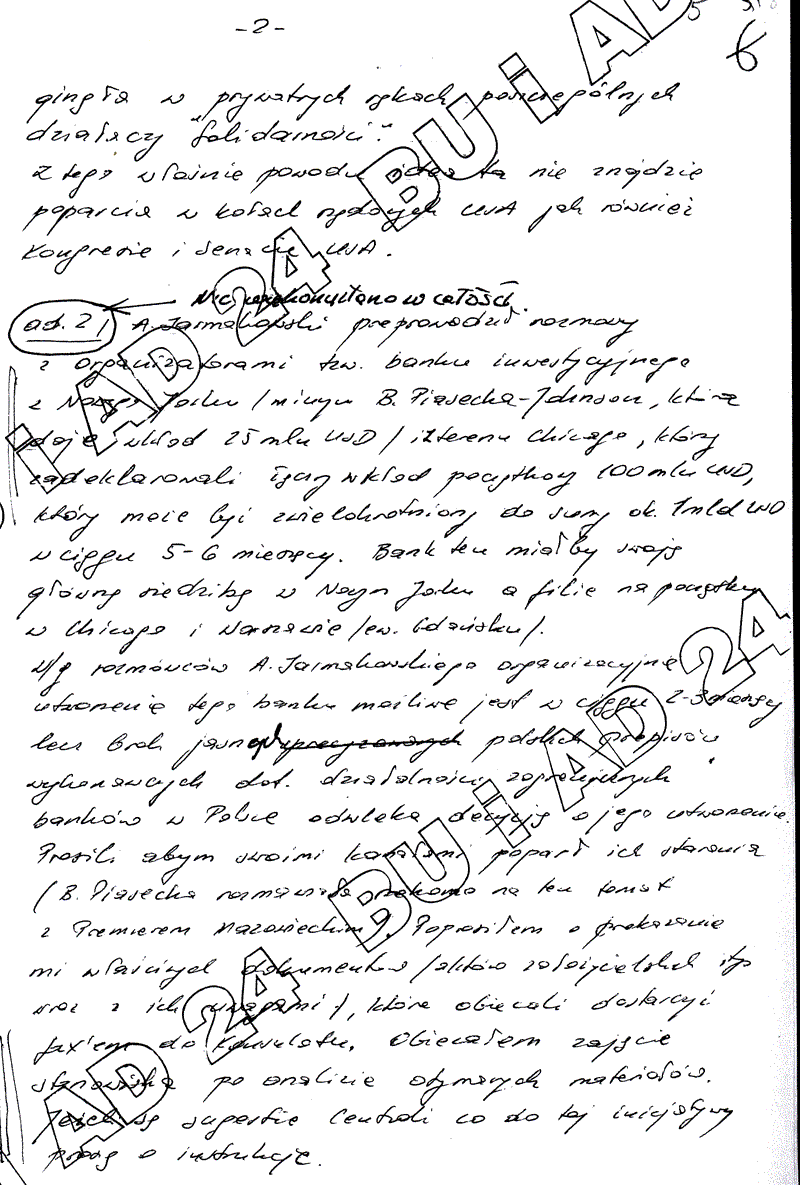 -2-
6
ginęła w prywatnych rękach poszczególnych
działaczy "Solidarności".
Z tego właśnie powodu idea ta nie znajdzie
poparcia w kołach rządowych USA jak również
Kongresie i Senacie USA.
wykorzystano w całości.
ad. 2/ A. Jarmakowski przeprowadził rozmowy
z organizatorami tzw. banku inwestycyjnego
z Nowego Jorku /m.innymi B. Piasecka-Johnson, która
daje wkład 25 mln USD/ i z terenu Chicago, który
zadeklarowali łączny wkład początkowy 100 mln USD,
który może być zwielokrotniony do sumy ok. 1 mld USD
w ciągu 5-6 miesięcy. Bank ten miałby swoją
główną siedzibę w Nowym Jorku a filie na początku
w Chicago i Warszawie /ew. Gdańsku/.
W/g rozmówców A. Jarmakowskiego organizacyjnie
utworzenie tego banku możliwe jest w ciągu 2-3 miesięcy
lecz brak jasnych polskich przepisów
wykonawczych dot. działalności zagranicznych
banków w Polsce odwleka decyzję o jego utworzeniu.
Prosili abym swoimi kanałami poparł ich starania
/B. Piasecka rozmawiała rzekomo na ten temat
z Premierem Mazowieckim/. Poprosiłem o przekazanie
mi właściwych dokumentów /aktów założycielskich itp
wraz z ich uwagami/, które obiecali dostarczyć
fax'em do Konsulatu. Obiecałem zajęcie
stanowiska po analizie otrzymanych materiałów.
Jeżeli są sugestie Centrali co do tej inicjatywy
proszę o instrukcje.
BU i AD 24
BU i AD 24
BU i AD 24